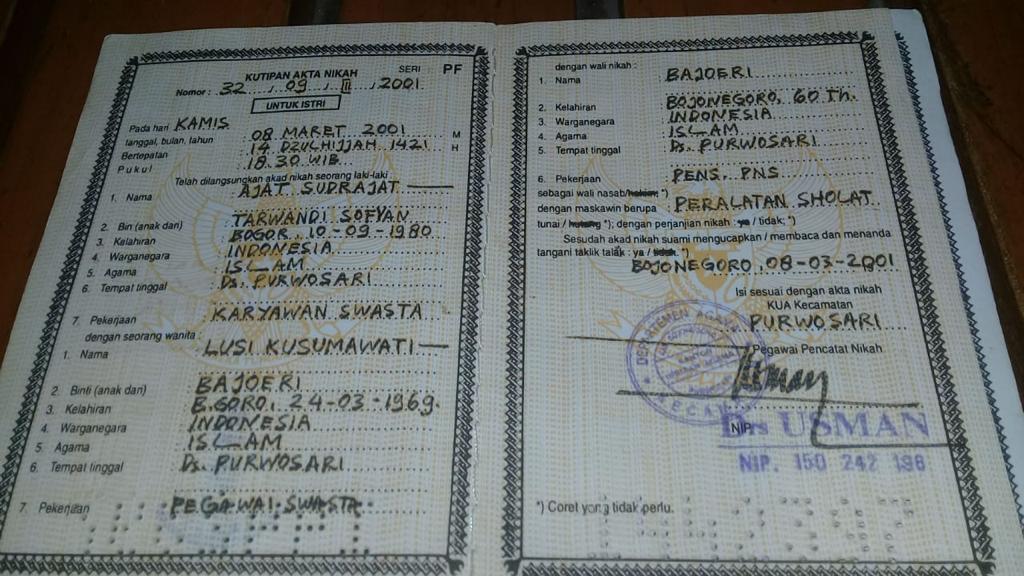 KUTIPAN AKTA NIKAH SERI PF
Nomor : 32 / 09 / III / 2001
UNTUK ISTRI
Pada hari KAMIS
tanggal, bulan, tahun 08 MARET 2001 M
Bertepatan 14 DZULHIJJAH 1421 H
Pukul 18.30 WIB
Telah dilangsungkan akad nikah seorang laki-laki
1. Nama AJAT SUDRAJAT
2. Bin (anak dari) TARWANDI SOFYAN
3. Kelahiran BOGOR, 10-09-1980
4. Warganegara INDONESIA
5. Agama ISLAM
6. Tempat tinggal Ds. PURWOSARI
7. Pekerjaan KARYAWAN SWASTA
dengan seorang wanita :
1. Nama LUSI KUSUMAWATI
2. Binti (anak dari) BAJOERI
3. Kelahiran B.GORO, 24-03-1969
4. Warganegara INDONESIA
5. Agama ISLAM
6. Tempat tinggal Ds. PURWOSARI
7. Pekerjaan PEGAWAI SWASTA
dengan wali nikah :
1. Nama BAJOERI
2. Kelahiran BOJONEGORO, 60 Th.
3. Warganegara INDONESIA
4. Agama ISLAM
5. Tempat tinggal Ds. PURWOSARI
6. Pekerjaan PENS. PNS
sebagai wali nasab/hakim; *)
dengan maskawin berupa PERALATAN SHOLAT
tunai / hutang *); dengan perjanjian nikah : ya / tidak; *)
Sesudah akad nikah suami mengucapkan / membaca dan menanda
tangani taklik talak : ya / tidak. *)
BOJONEGORO, 08-03-2001
Isi sesuai dengan akta nikah
KUA Kecamatan
PURWOSARI
Pegawai Pencatat Nikah
DEPARTEMEN AGAMA
Drs USMAN
NIP.
NIP. 150 242 196
*) Coret yang tidak perlu.